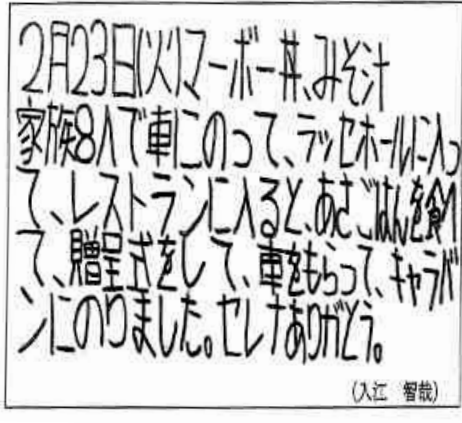 2月23日(火)マーボー丼、みそ汁
家族8人で車にのって、ラッセホールに入っ
て、レストランに入ると、あさごはんを食べ
て、贈呈式をして、車をもらって、キャラバ
ンにのりました。セレナありがとう。
(入江 智哉)